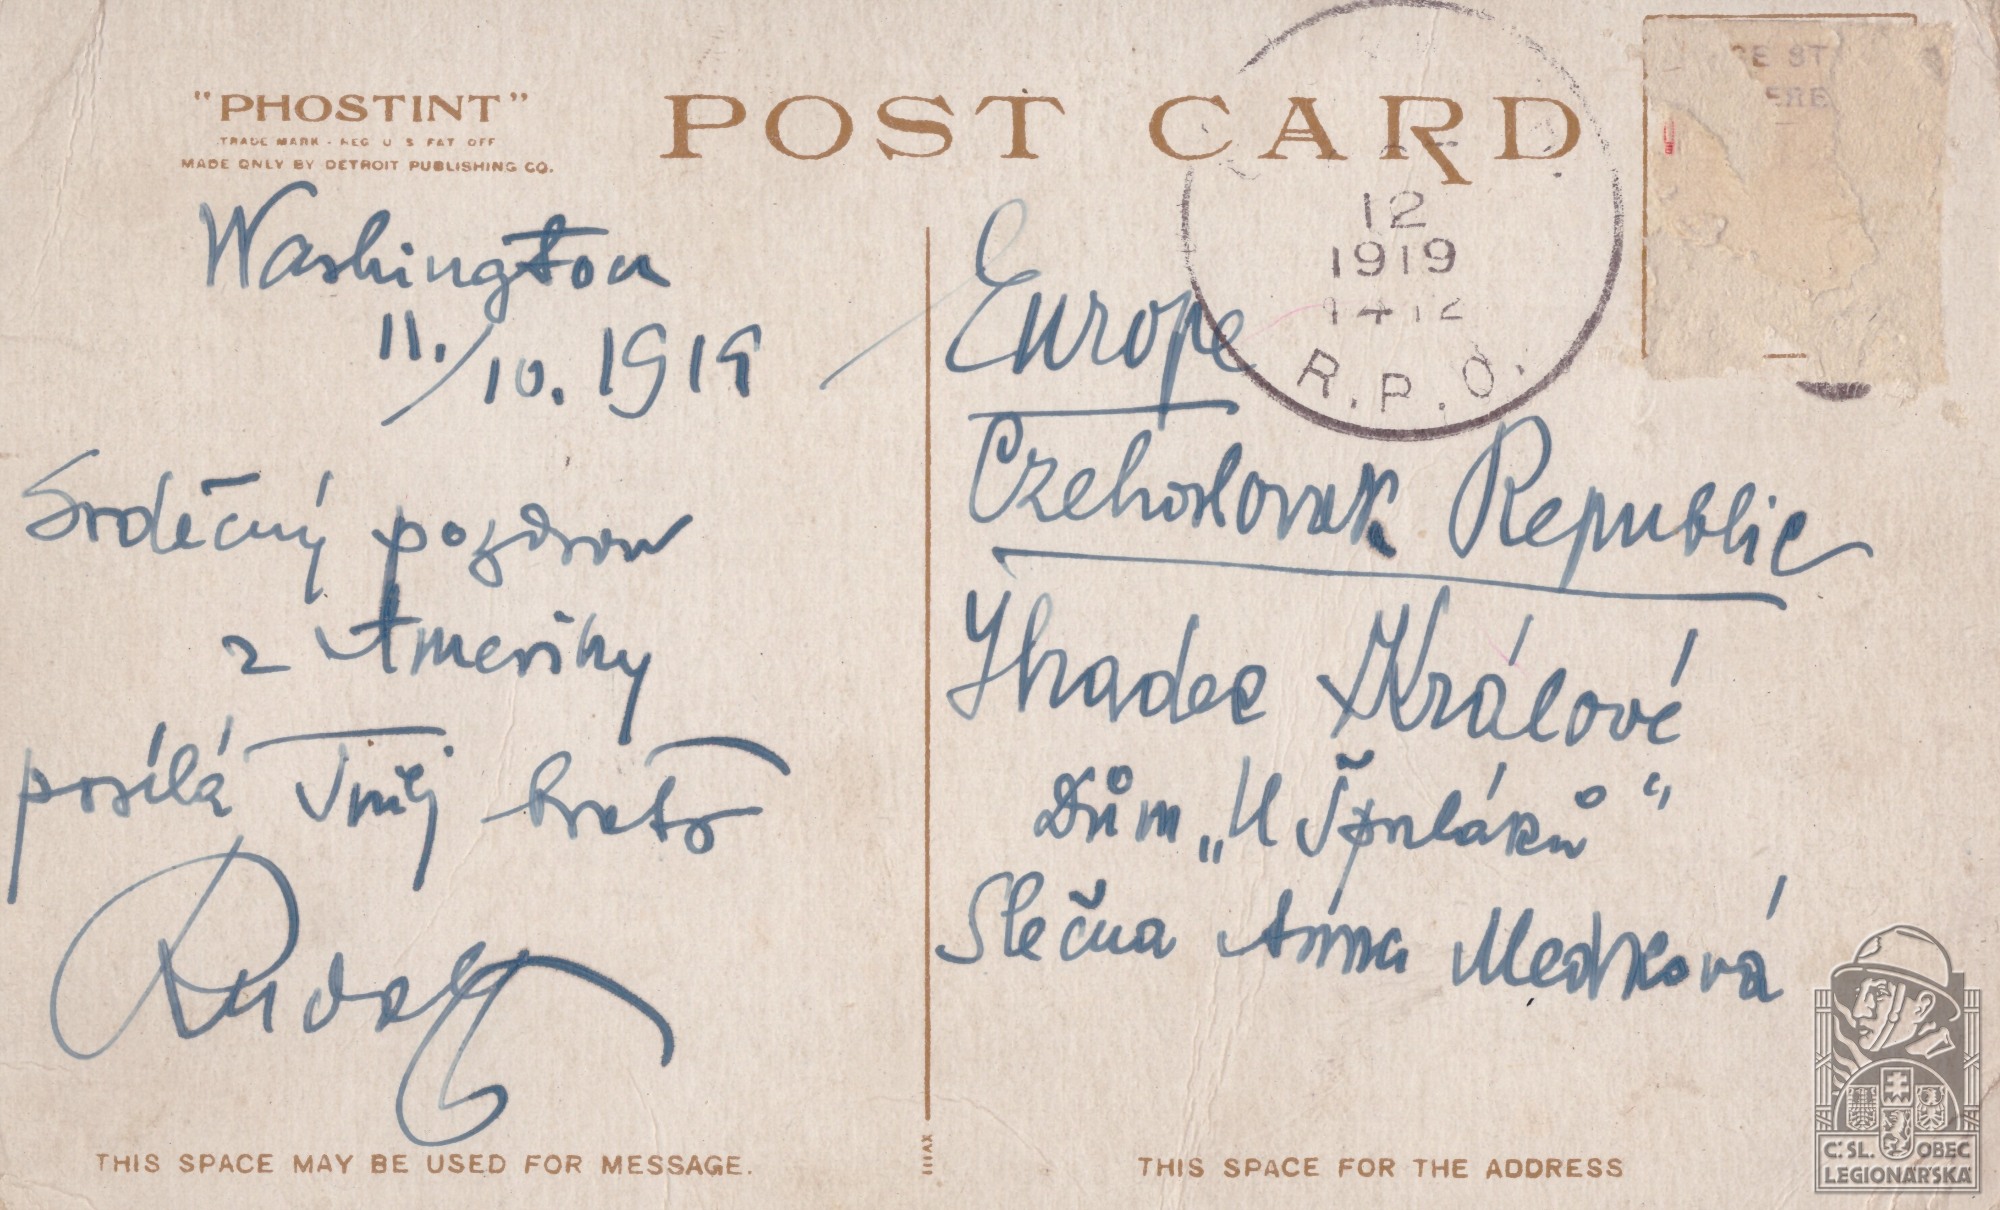 "PHOSTINT"
TRADE MARK - REG U S PAT OFF
MADE ONLY BY DETROIT PUBLISHING CO.
POST CARD
12
1919
R.P.O.
Washington
11./10. 1919
Srdečný pozdrav
z Ameriky
posílá Tvůj bratr
Rudolf
Europe
Czehoslovak Republic
Hradec Králové
Dům „U Špuláků“
Slečna Anna Medková
THIS SPACE MAY BE USED FOR MESSAGE.
THIS SPACE FOR THE ADDRESS
Č.SL. OBEC
LEGIONÁŘSKÁ